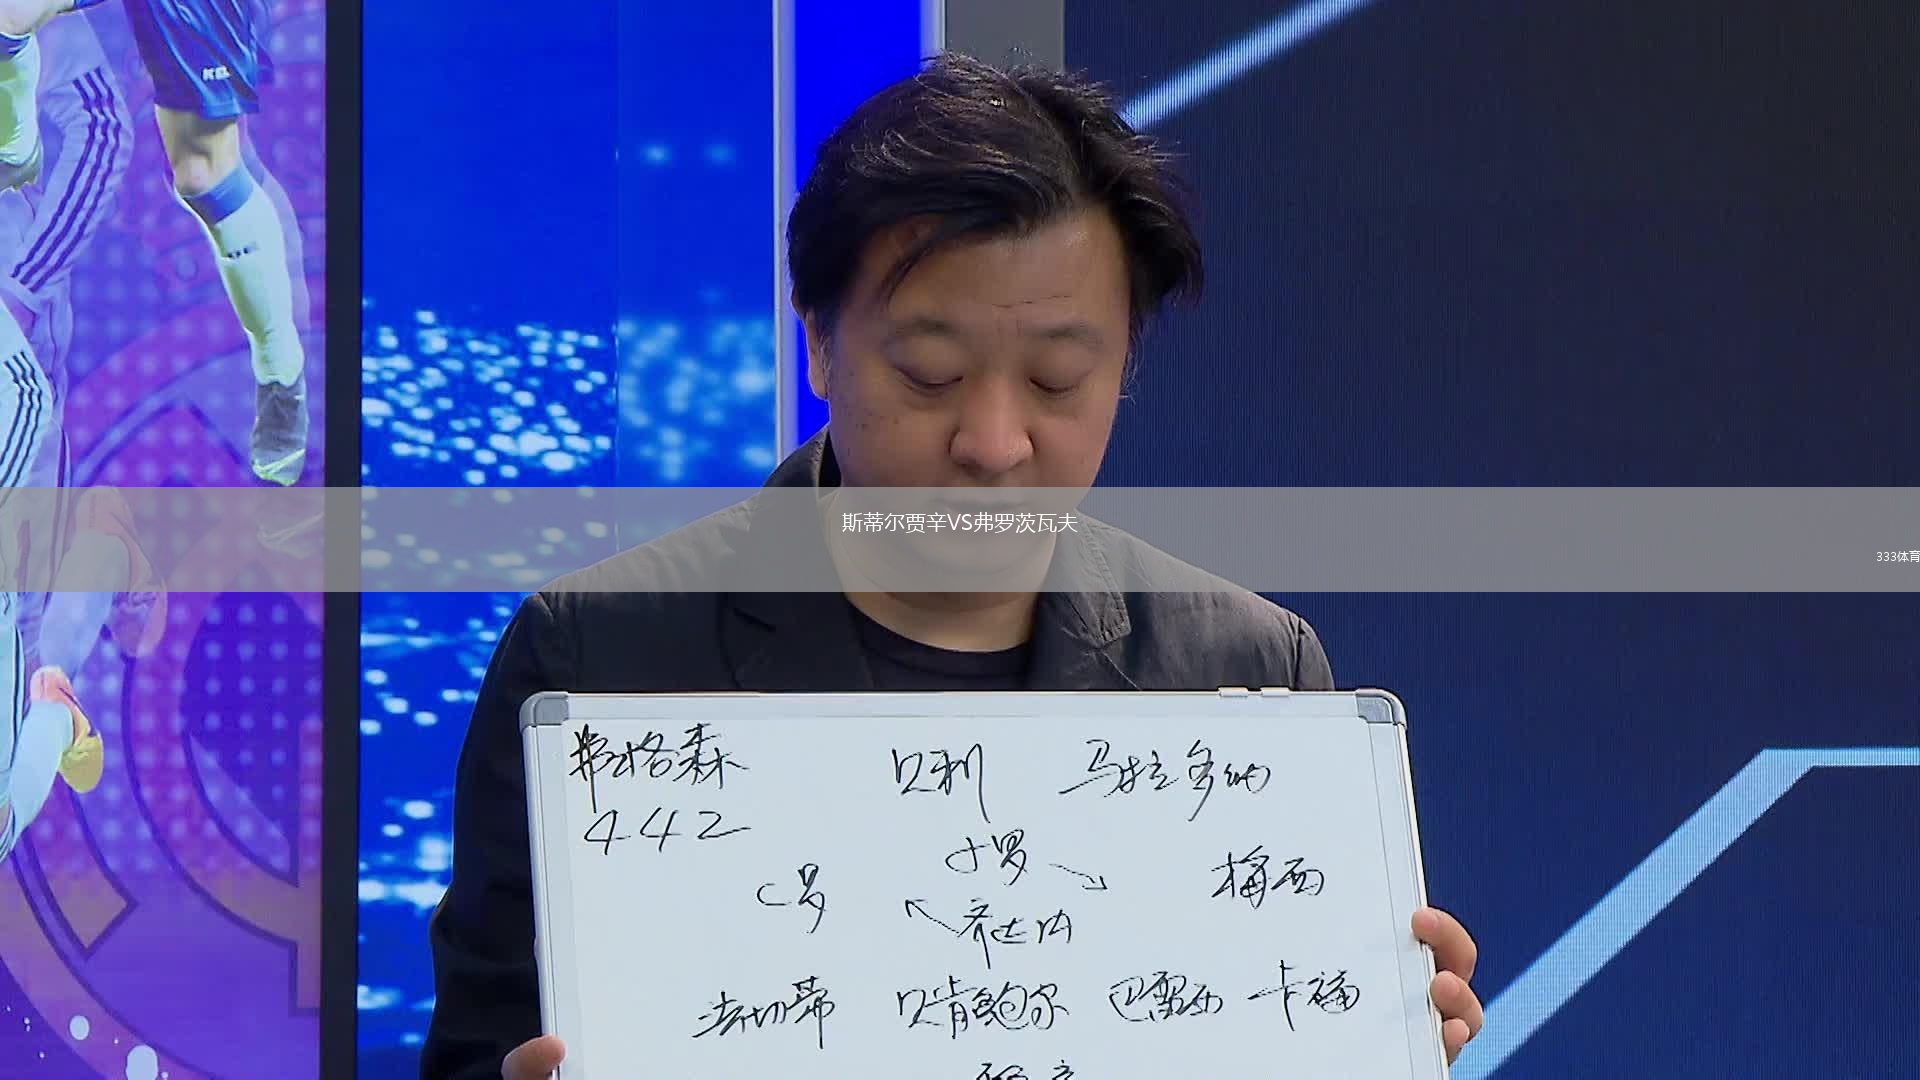 斯蒂尔贾辛VS弗罗茨瓦夫
333体育
弗格森 贝利 马拉多纳
442
小罗
C罗 梅西
齐达内
法切蒂 贝肯鲍尔 巴雷西 卡福